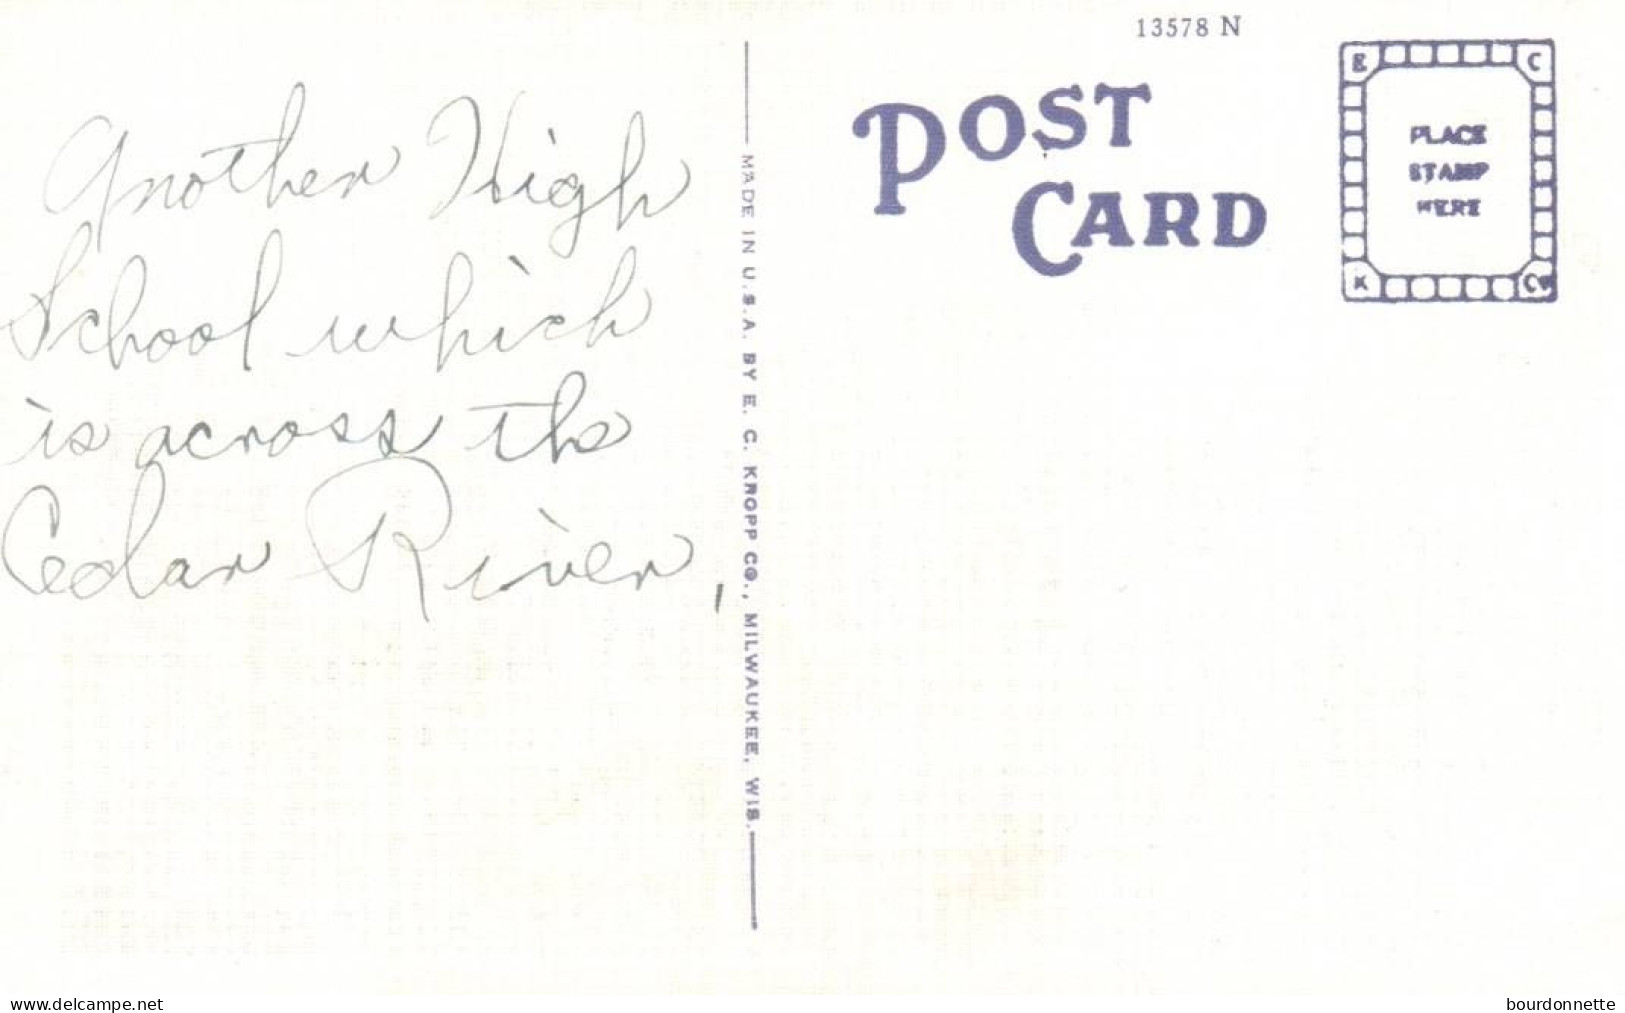 13578 N
POST
CARD
E C
PLACE
STAMP
HERE
K Co
Another High
School which
is across the
Cedar River,
MADE IN U.S.A. BY E. C. KROPP CO., MILWAUKEE, WIS.
www.delcampe.net
bourdonnette